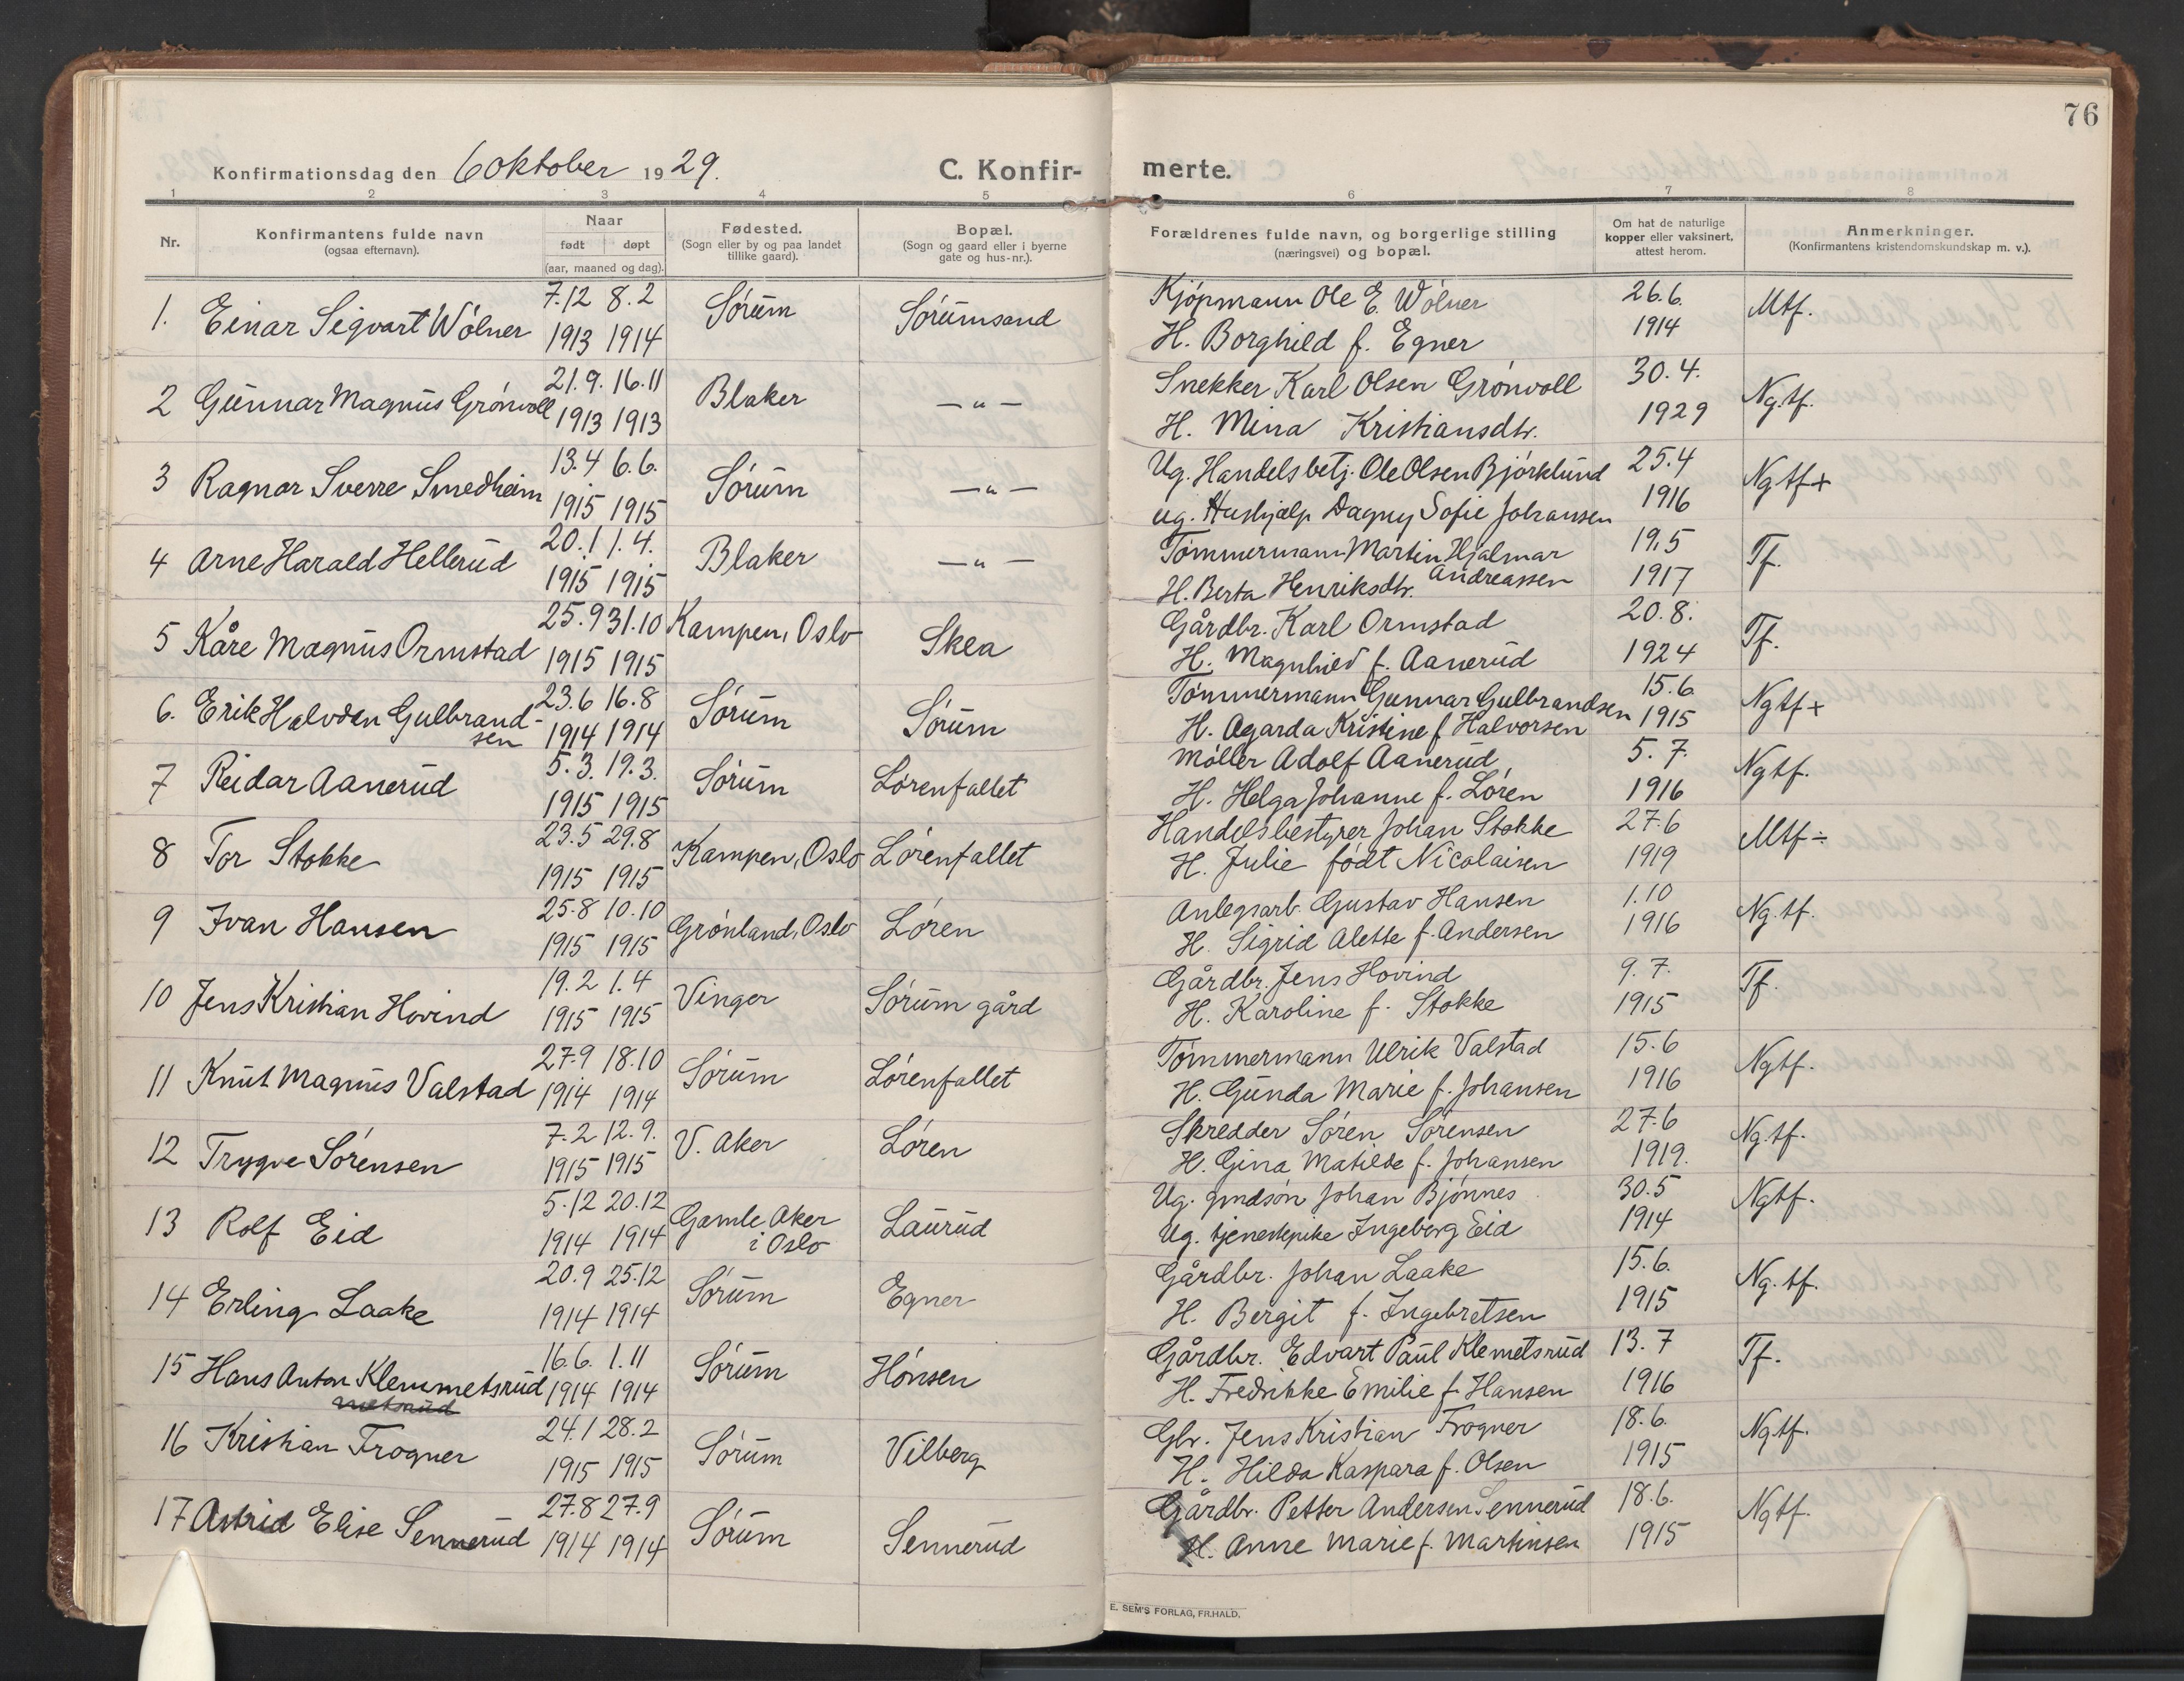 76
Konfirmationsdag den 6 oktober 1929.
C. Konfir- merte.
1 2 3 4 5 6 7 8
Nr.
Konfirmantens fulde navn
(ogsaa efternavn).
Naar
født døpt
(aar, maaned og dag).
Fødested.
(Sogn eller by og paa landet
tillike gaard).
Bopæl.
(Sogn og gaard eller i byerne
gate og hus-nr.).
Forældrenes fulde navn, og borgerlige stilling
(næringsvei) og bopæl.
Om hat de naturlige
kopper eller vaksinert,
attest herom.
Anmerkninger.
(Konfirmantens kristendomskundskap m. v.).
7.12 8.2 Kjøpmann Ole E. Wølner 26.6.
1. Einar Sigvart Wølner 1913 1914 Sørum Sørumsand H. Borghild f. Egner 1914 Mtf.
21.9. 16.11 Snekker Karl Olsen Grønvoll 30.4.
2 Gunnar Magnus Grønvoll 1913 1913 Blaker — " — H. Mina Kristiansdtr. 1929 Ng.tf.
13.4 6.6. Ug. Handelsbetj. Ole Olsen Bjørklund 25.4
3 Ragnar Sverre Smedheim 1915 1915 Sørum — " — ug. Hushjælp Dagny Sofie Johansen 1916 Ngtf+
20.1 1.4. Tømmermann Martin Hjalmar Andreassen 19.5
4 Arne Harald Hellerud 1915 1915 Blaker — " — H. Berta Henriksdtr. 1917 Tf.
25.9 31.10 Gårdbr. Karl Ormstad 20.8.
5 Kåre Magnus Ormstad 1915 1915 Kampen, Oslo Skea H. Magnhild f. Aanerud 1924 Tf.
23.6 16.8 Tømmermann Gunnar Gulbrandsen 15.6.
6. Erik Halvdan Gulbrand-
sen 1914 1914 Sørum Sørum H. Agarda Kristine f. Halvorsen 1915 Ngtf+
5.3. 19.3. Møller Adolf Aanerud 5.7.
7 Reidar Aanerud 1915 1915 Sørum Lørenfallet H. Helga Johanne f. Løren 1916 Ngtf.
23.5 29.8 Handelsbestyrer Johan Stokke 27.6
8 Tor Stokke 1915 1915 Kampen, Oslo Lørenfallet H. Julie født Nicolaisen 1919 Mtf÷
25.8 10.10 Anlegsarb. Gustav Hansen 1.10
9 Ivan Hansen 1915 1915 Grønland, Oslo Løren H. Sigrid Alette f. Andersen 1916 Ng.tf.
19.2 1.4 Gårdbr. Jens Hovind 9.7.
10 Jens Kristian Hovind 1915 1915 Vinger Sørum gård H. Karoline f. Stokke 1915 Tf.
27.9 18.10 Tømmermann Ulrik Valstad 15.6
11 Knut Magnus Valstad 1914 1914 Sørum Lørenfallet H. Gunda Marie f. Johansen 1916 Ngtf.
7.2 12.9. Skredder Søren Sørensen 27.6
12 Trygve Sørensen 1915 1915 V. Aker Løren H. Gina Matilde f. Johansen 1919. Ng.tf.
5.12 20.12 Ug. gmdsøn Johan Bjønnes 30.5
13 Rolf Eid 1914 1914 Gamle Aker
i Oslo Laurud Ug. tjenestepike Ingeborg Eid 1914 Ngtf.
20.9 25.12 Gårdbr. Johan Laake 15.6.
14 Erling Laake 1914 1914 Sørum Egner H. Bergit f. Ingebretsen 1915 Ng.tf.
16.6. 1.11 Gårdbr. Edvart Paul Klemetsrud 13.7
15 Hans Anton Klemmetsrud 1914 1914 Sørum Hønsen H. Fredrikke Emilie f. Hansen 1916 Tf.
24.1 28.2 Gbr. Jens Kristian Frogner 18.6.
16 Kristian Frogner 1915 1915 Sørum Vilberg H. Hilda Kaspara f. Olsen 1915 Ngtf.
27.8 27.9 Gårdbr. Petter Andersen Sennerud 18.6.
17 Astrid Elise Sennerud 1914 1914 Sørum Sennerud H. Anne Marie f. Martinsen 1915 Ngtf.
E. SEM'S FORLAG, FR.HALD.